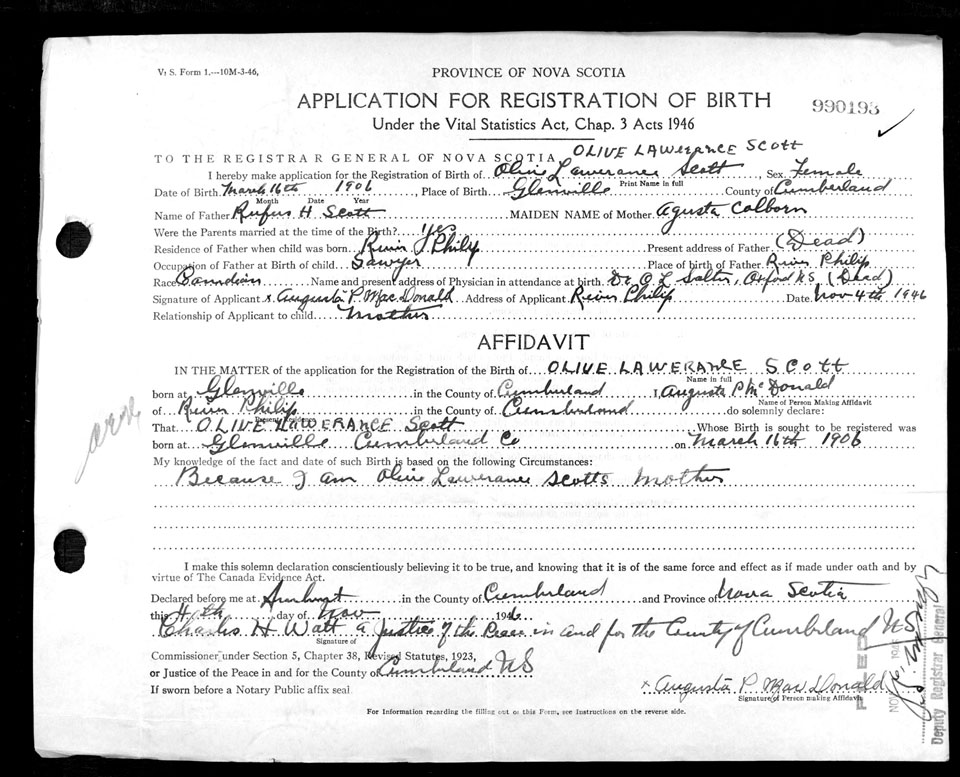 Vt S. Form 1.—10M-3-46,
PROVINCE OF NOVA SCOTIA
APPLICATION FOR REGISTRATION OF BIRTH
990193
Under the Vital Statistics Act, Chap. 3 Acts 1946
OLIVE LAWERANCE SCOTT
TO THE REGISTRAR GENERAL OF NOVA SCOTIA
I hereby make application for the Registration of Birth of Olive Lawerance Scott Sex Female
Print Name in full
Date of Birth March 16th 1906, Place of Birth Glenville County of Cumberland
Month Date Year
Name of Father Rufus H Scott MAIDEN NAME of Mother Agusta Colborn
Were the Parents married at the time of the Birth? Yes
Residence of Father when child was born River Philip Present address of Father (Dead)
Occupation of Father at Birth of child Sawyer Place of birth of Father River Philip
Race Canadian Name and present address of Physician in attendance at birth Dr. O L Salter, Oxford N.S. (Dead)
Signature of Applicant x Augusta P MacDonald Address of Applicant River Philip Date Nov 4th 1946
Relationship of Applicant to child Mother
AFFIDAVIT
IN THE MATTER of the application for the Registration of the Birth of OLIVE LAWERANCE SCOTT
Name in full
born at Glenville in the County of Cumberland I Augusta P McDonald
Name of Person Making Affidavit
of River Philip in the County of Cumberland do solemnly declare:
That OLIVE LAWERANCE Scott Whose Birth is sought to be registered was
born at Glenville Cumberland Co on March 16th 1906
My knowledge of the fact and date of such Birth is based on the following Circumstances:
Because I am Olive Lawerance Scotts Mother
I make this solemn declaration conscientiously believing it to be true, and knowing that it is of the same force and effect as if made under oath and by
virtue of The Canada Evidence Act.
Declared before me at Amherst in the County of Cumberland and Province of Nova Scotia
this 4th day of Nov 1946
Charles H Watt a Justice of the Peace in and for the County of Cumberland NS
Signature of
Commissioner under Section 5, Chapter 38, Revised Statutes, 1923,
or Justice of the Peace in and for the County of Cumberland NS
If sworn before a Notary Public affix seal
x Augusta P MacDonald
Signature of Person making Affidavit
For Information regarding the filling out of this Form, see Instructions on the reverse side.
FILED
Deputy Registrar General